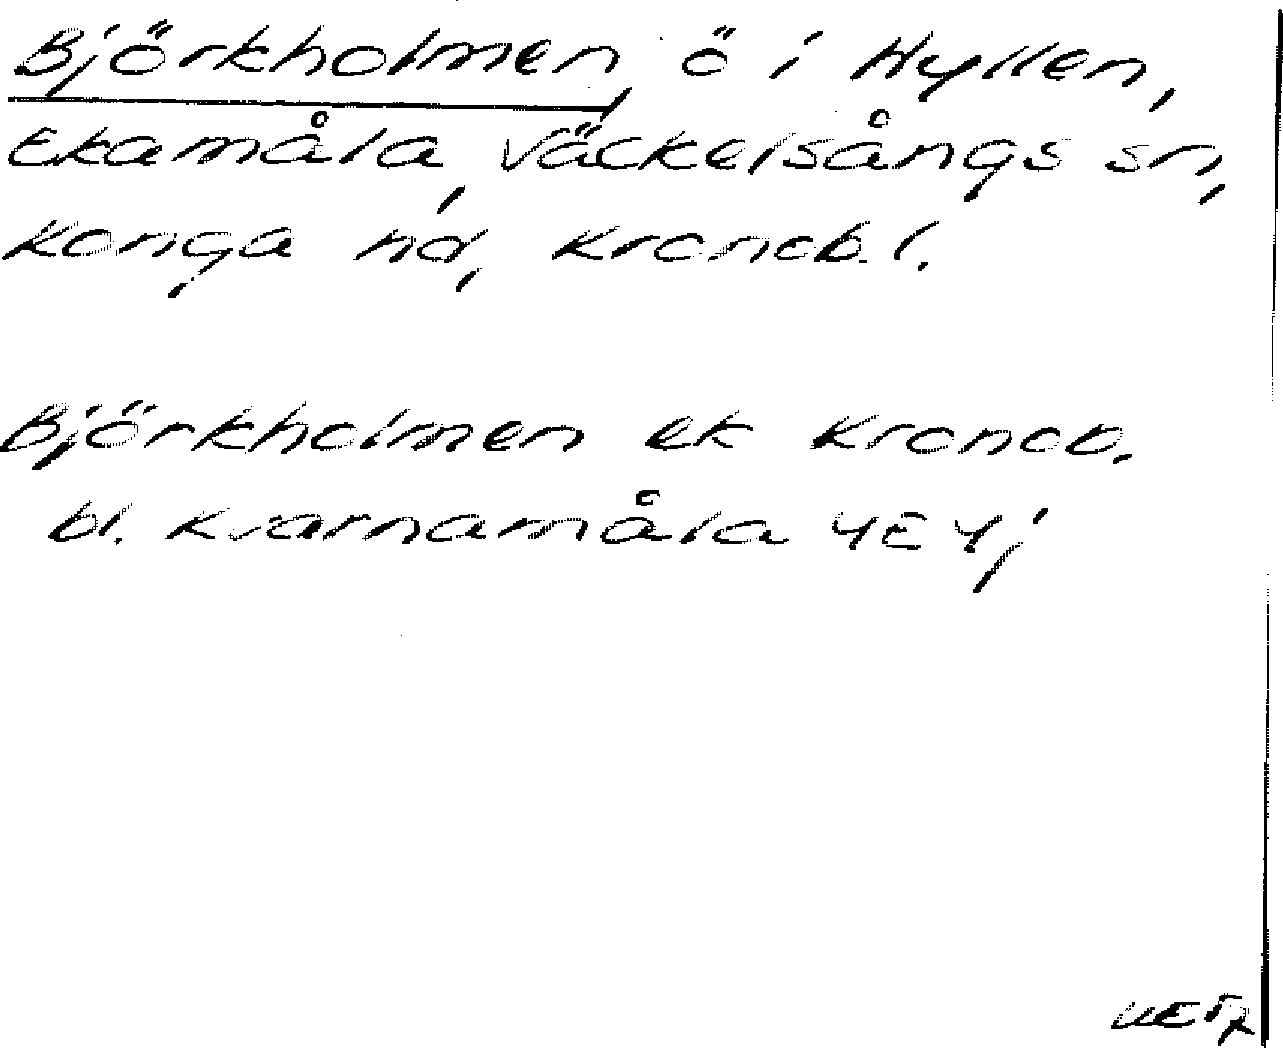 Björkholmen, ö i Hyllen,
Ekamåla, Väckelsångs sn,
Konga hd, Kronob. l.
Björkholmen ek Kronob.
bl. Kvarnamåla 4E4j